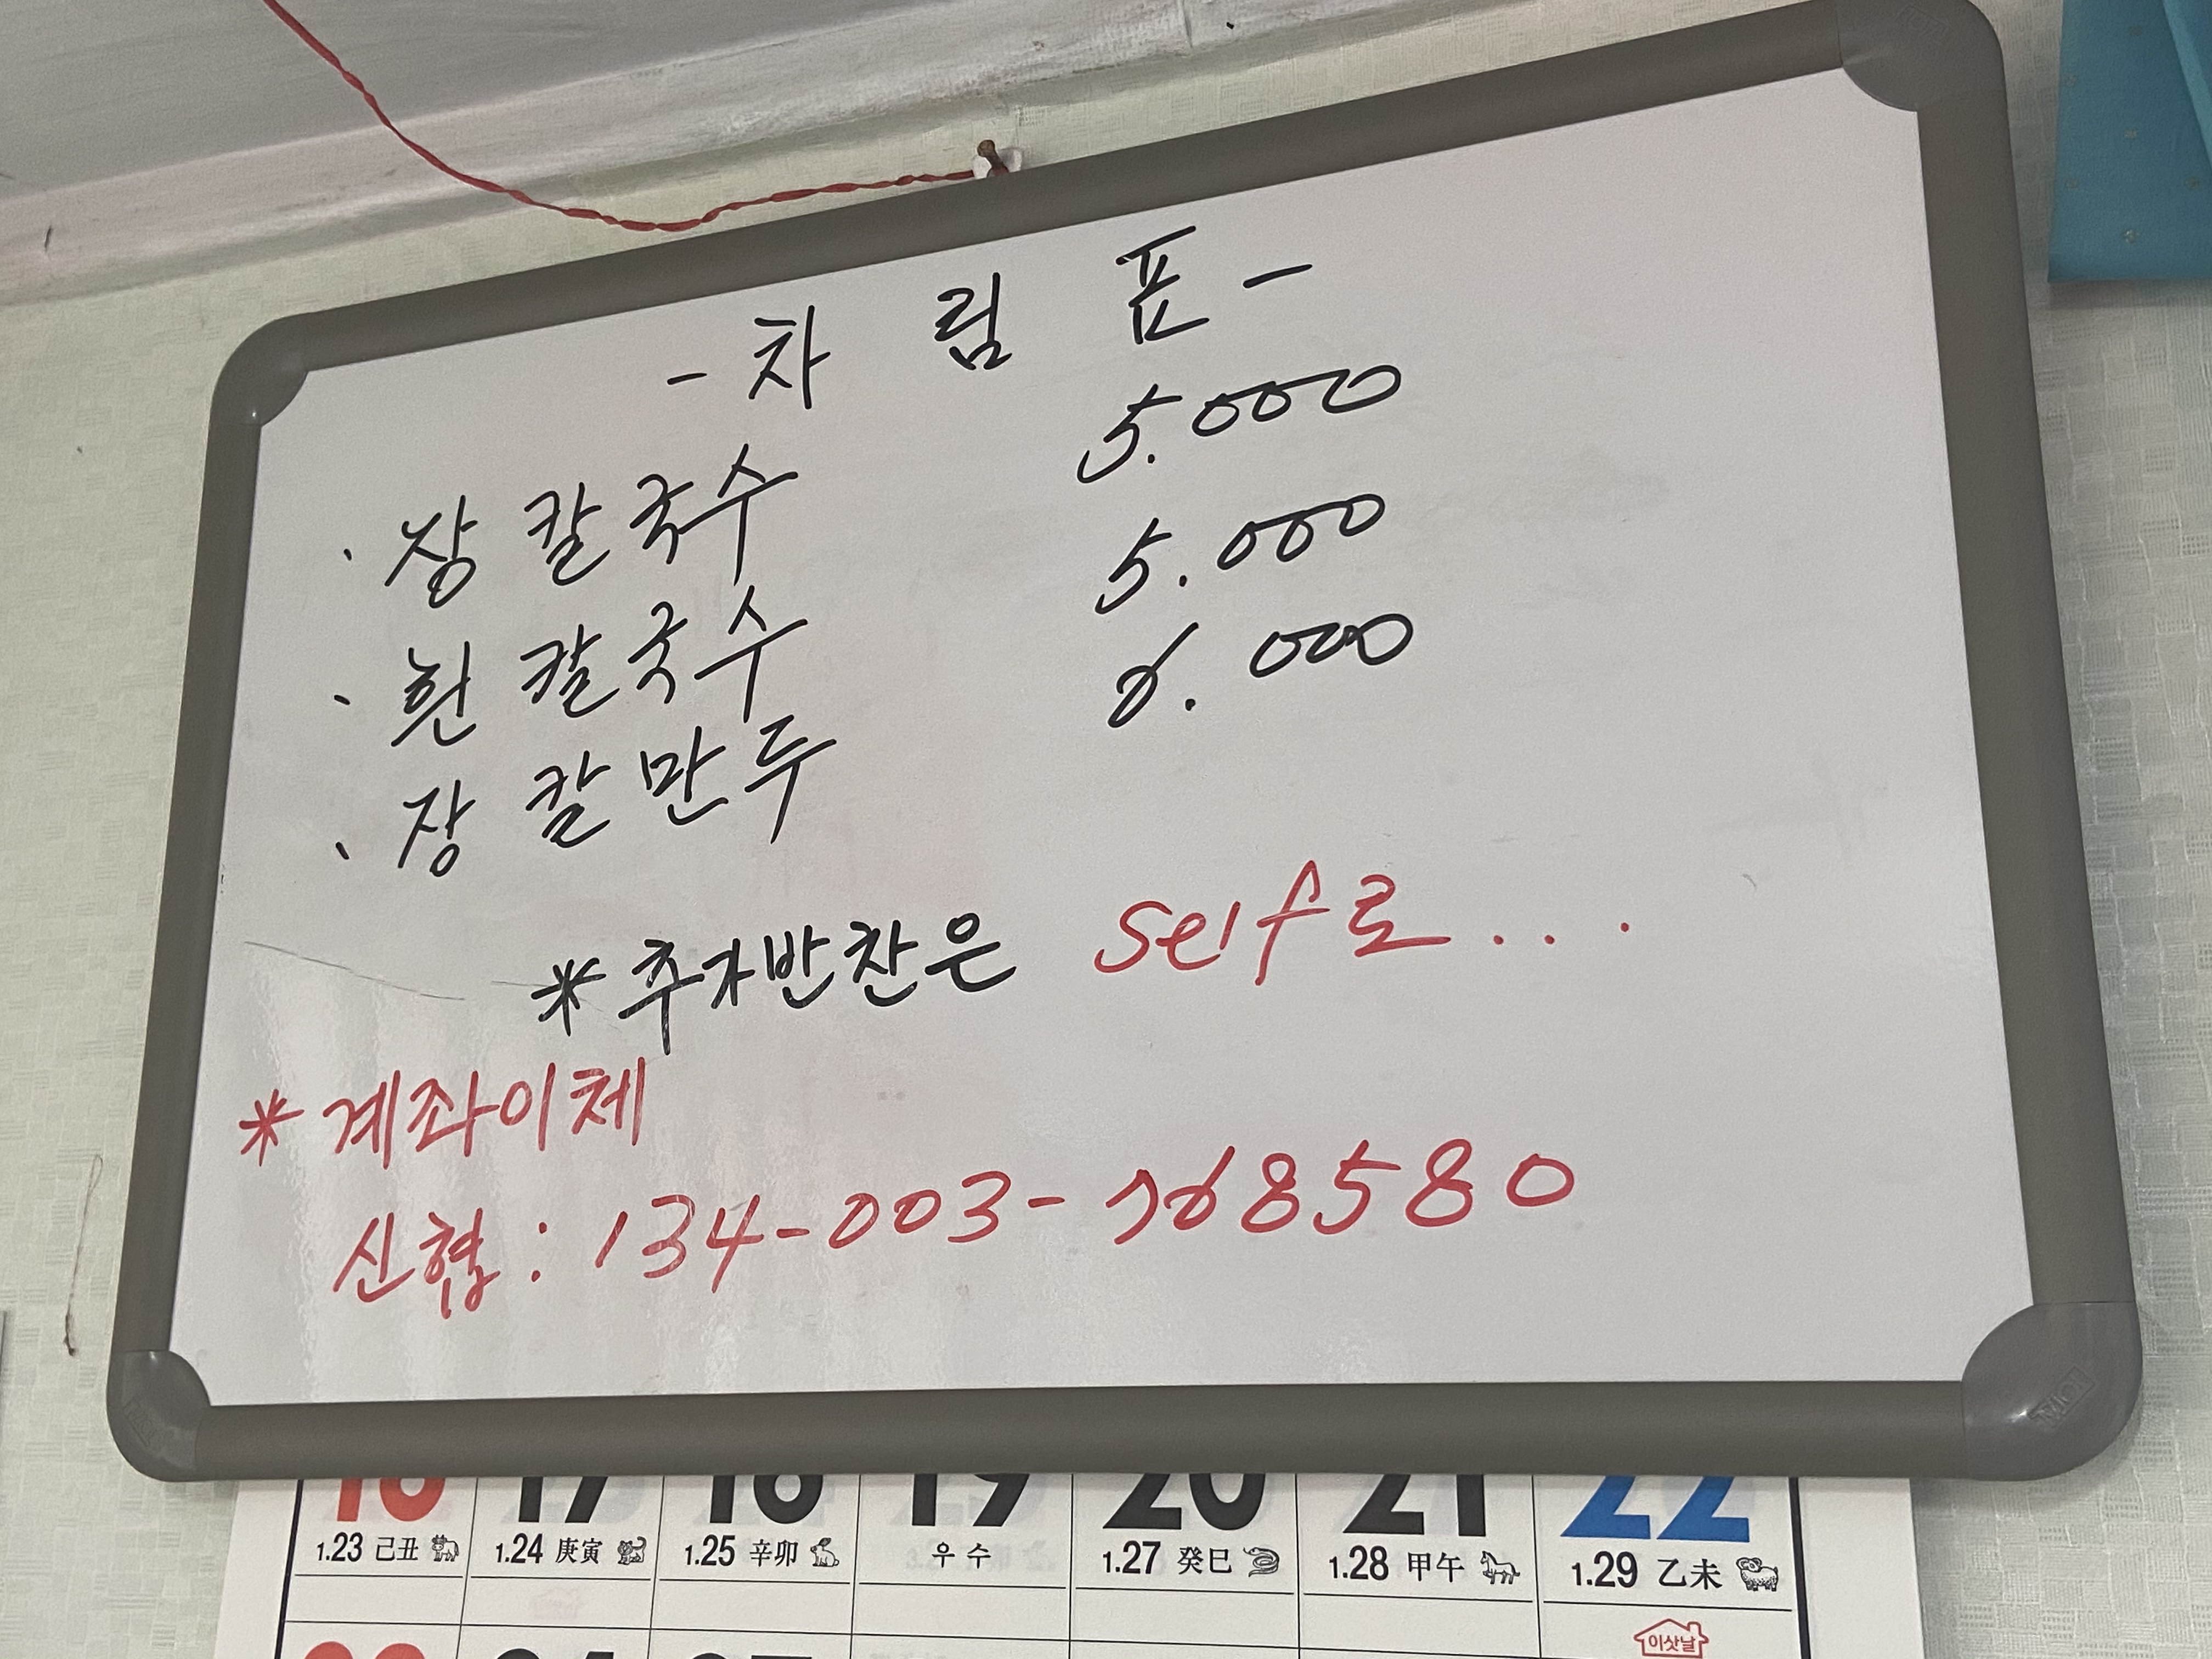 - 차 림 표 -
· 장 칼국수 5.000
· 흰 칼국수 5.000
· 장 칼만두 6.000
* 추가반찬은 self로...
* 계좌이체
신협 : 134-003-768580
16 17 18 19 20 21 22
1.23 己丑 1.24 庚寅 1.25 辛卯 우 수 1.27 癸巳 1.28 甲午 1.29 乙未
이삿날